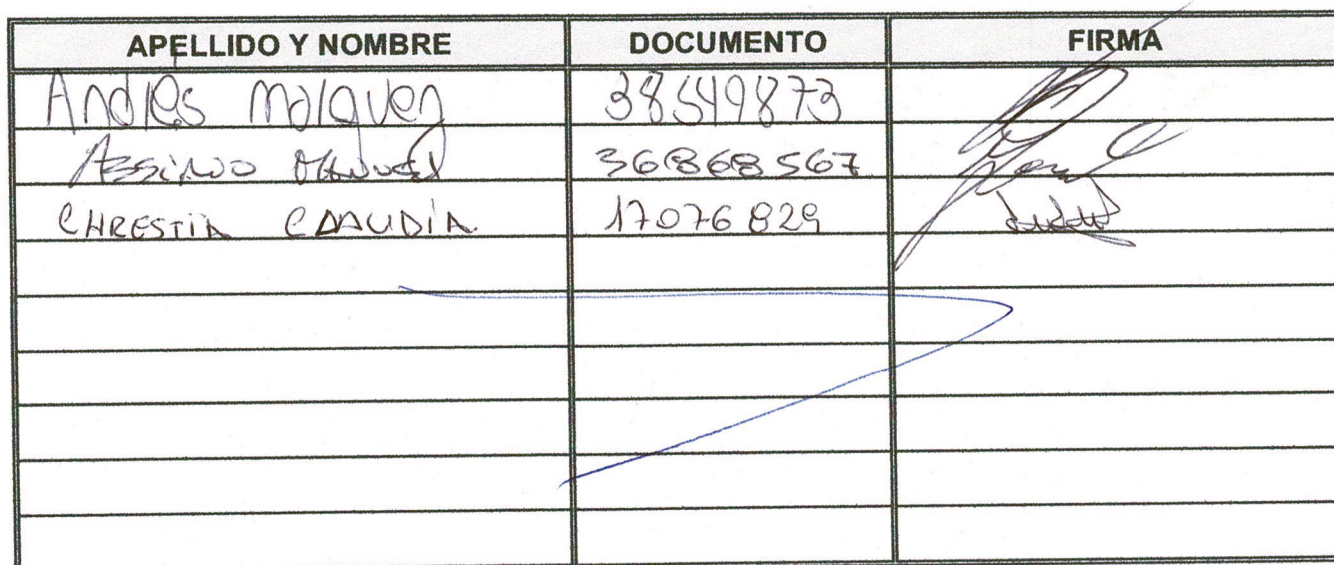 APELLIDO Y NOMBRE DOCUMENTO FIRMA
Andres 38549873
Manuel 36868567
CHRESTIA CLAUDIA 17076829